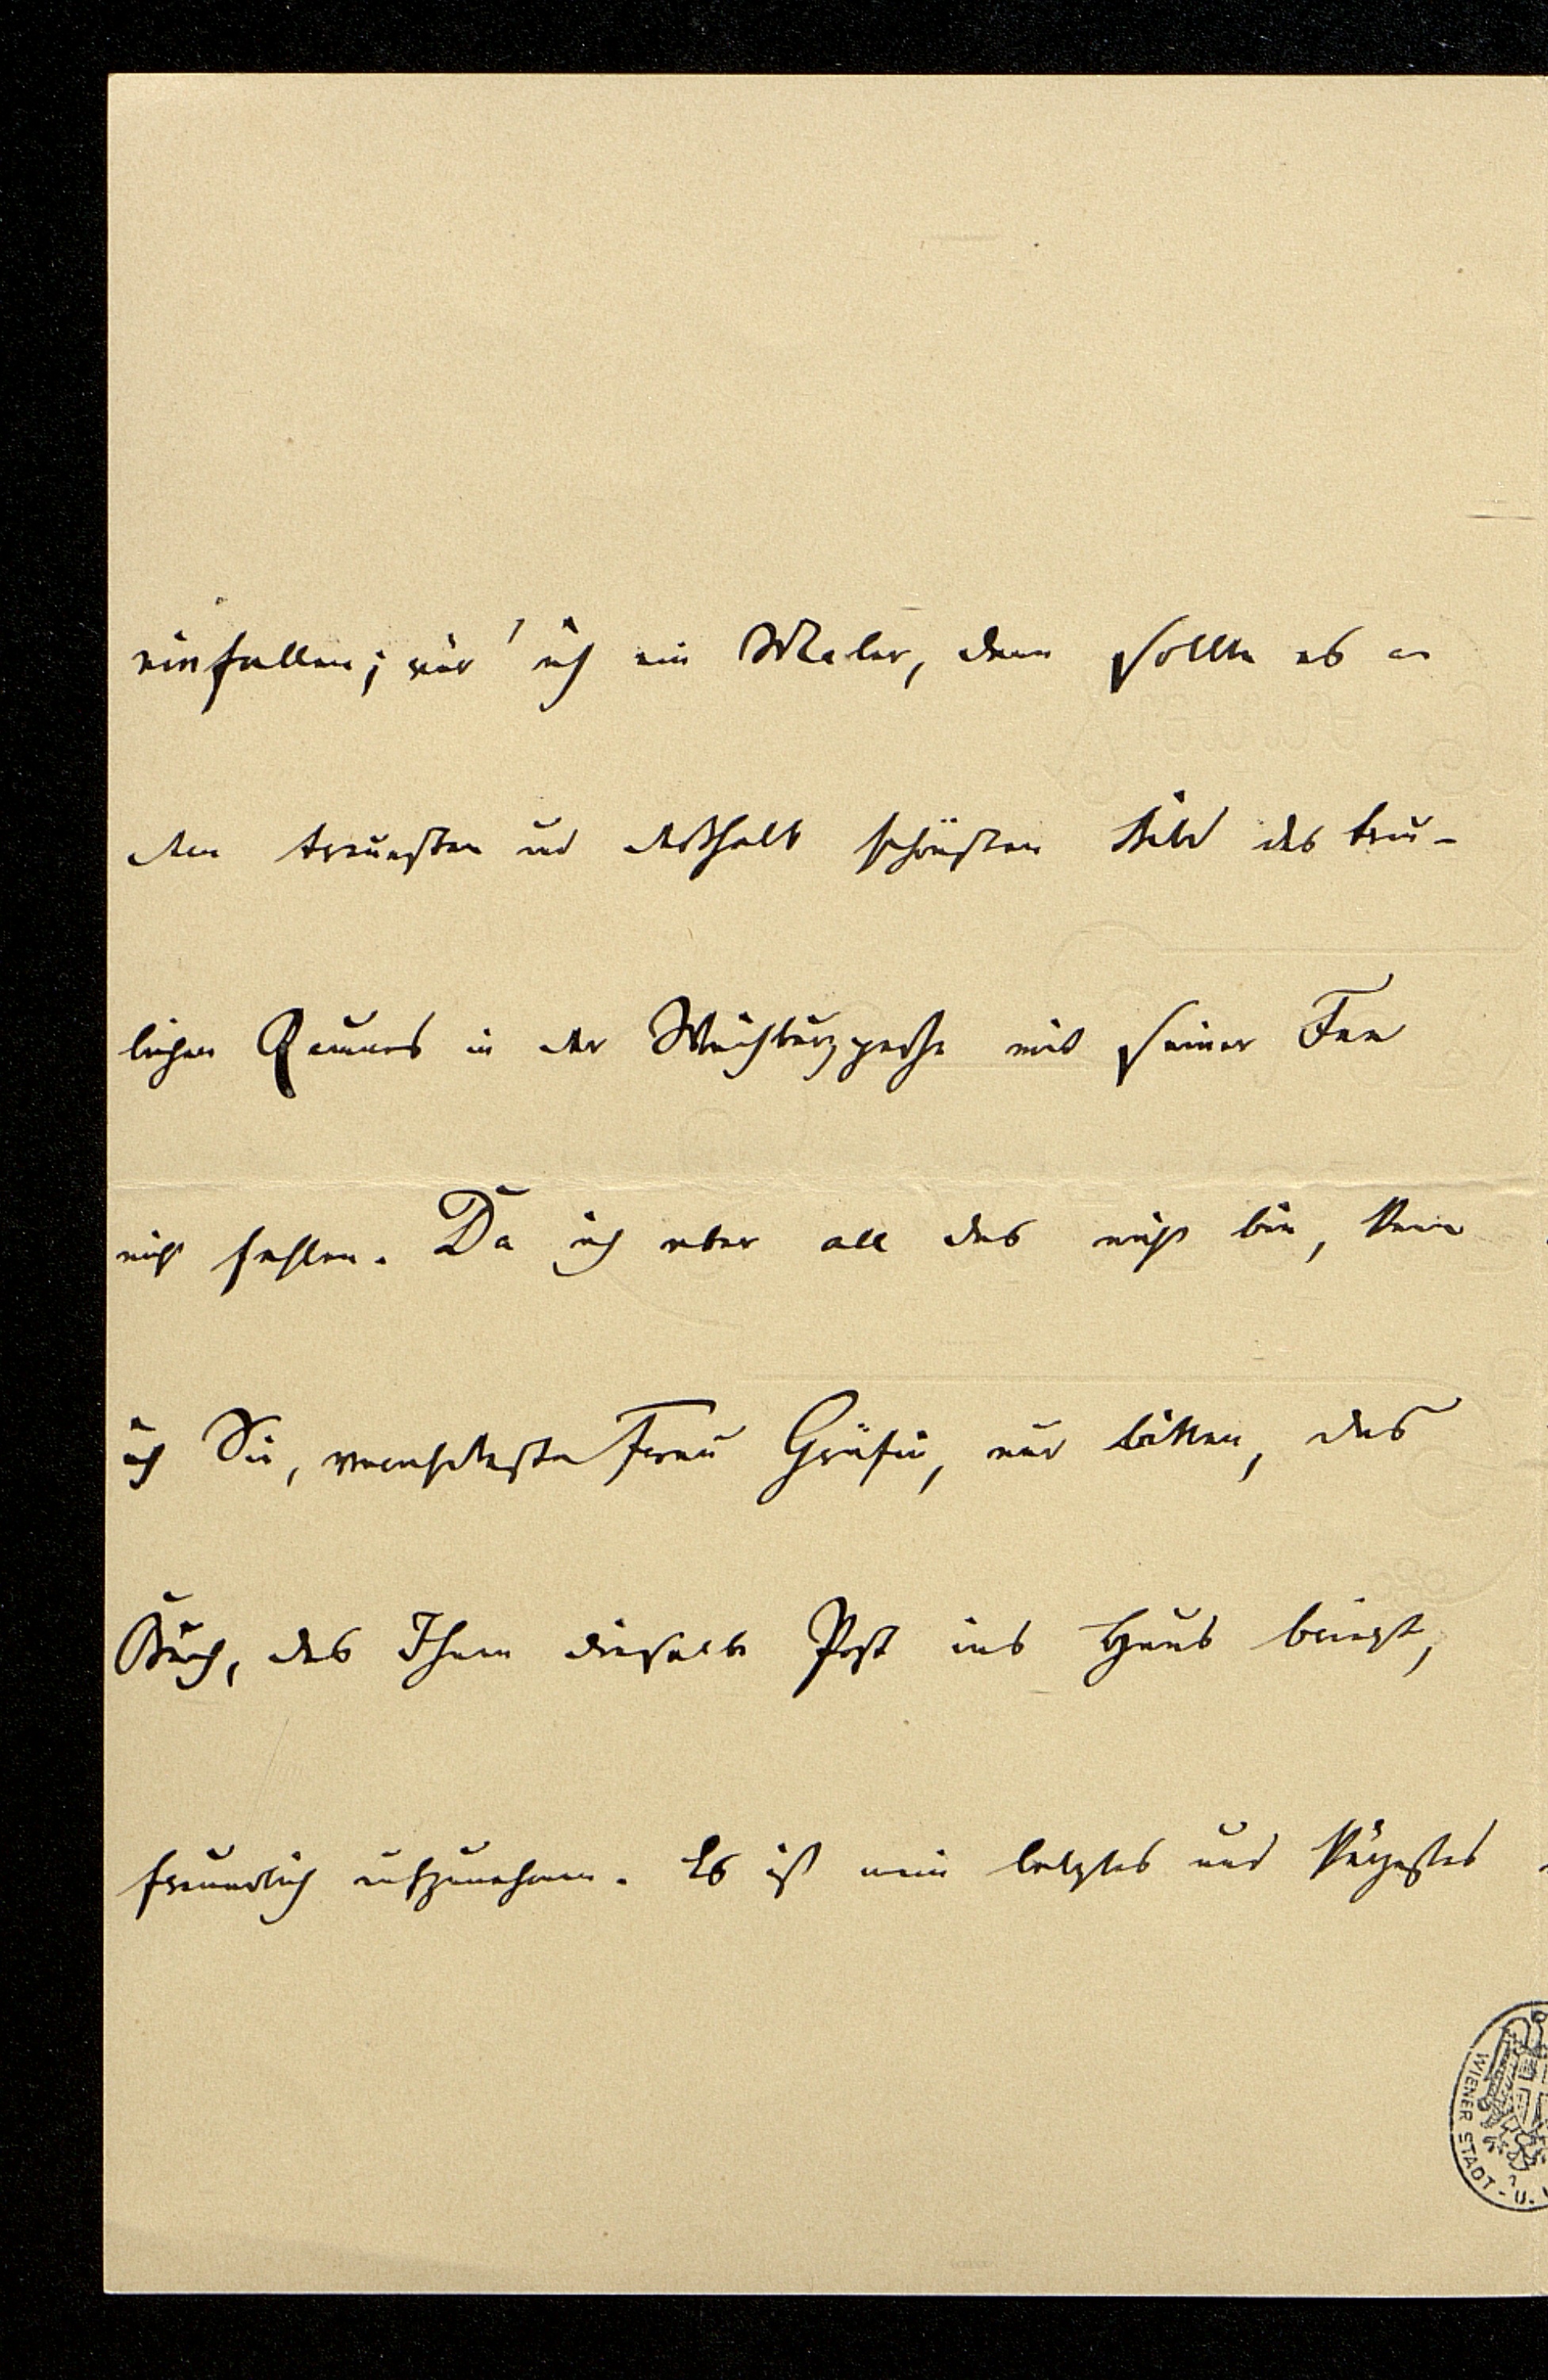 einfallen; wär' ich ein Maler, dann sollte es an
dem treuesten und deshalb schönsten Bild des trau-
lichen Raumes in der Weihburggasse mit seiner Fee
nicht fehlen. Da ich aber all das nicht bin, kann
ich Sie, verehrteste Frau Gräfin, nur bitten, das
Buch, das Ihnen dieselbe Post ins Haus bringt,
freundlich aufzunehmen. Es ist mein letztes und
WIENER STADT- U.